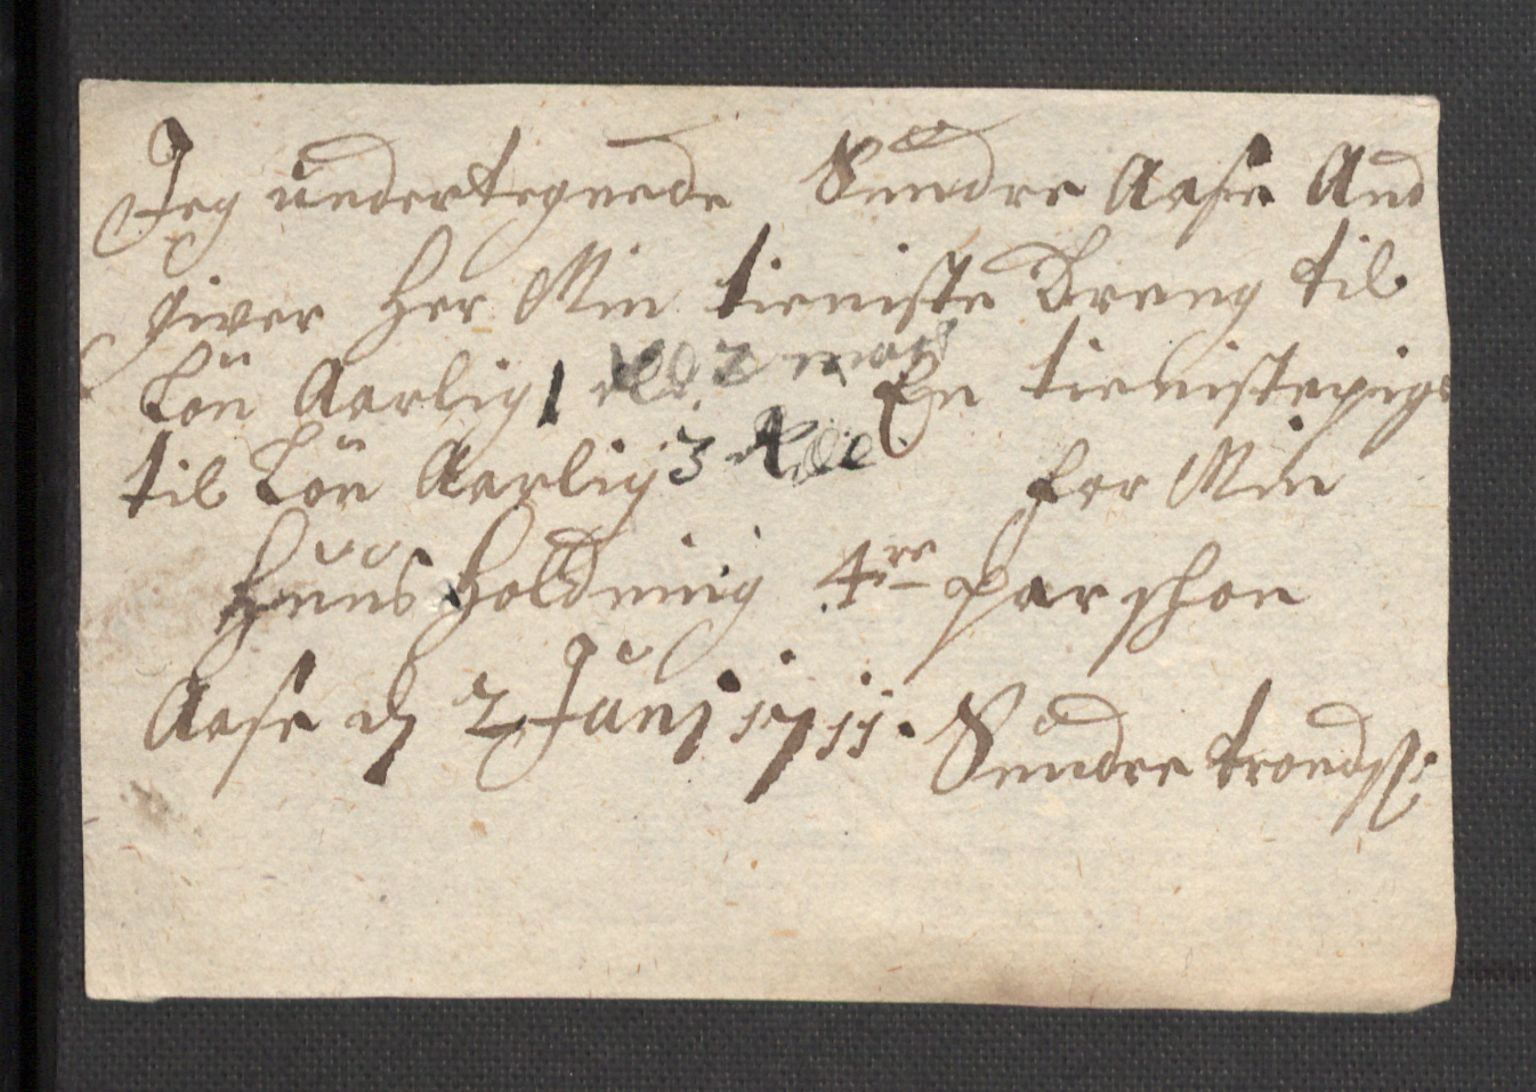 Jeg undertegnede Sendre Aase And
giver her Min tieniste Dreng til
Lön Aarlig 1 Rdl 2 mark En tienistepige
til Lön Aarlig 3 Rdl for Min
Huus Holdning 4re Parshon
Aase d 2 Junj 1711. Sendre trondss: